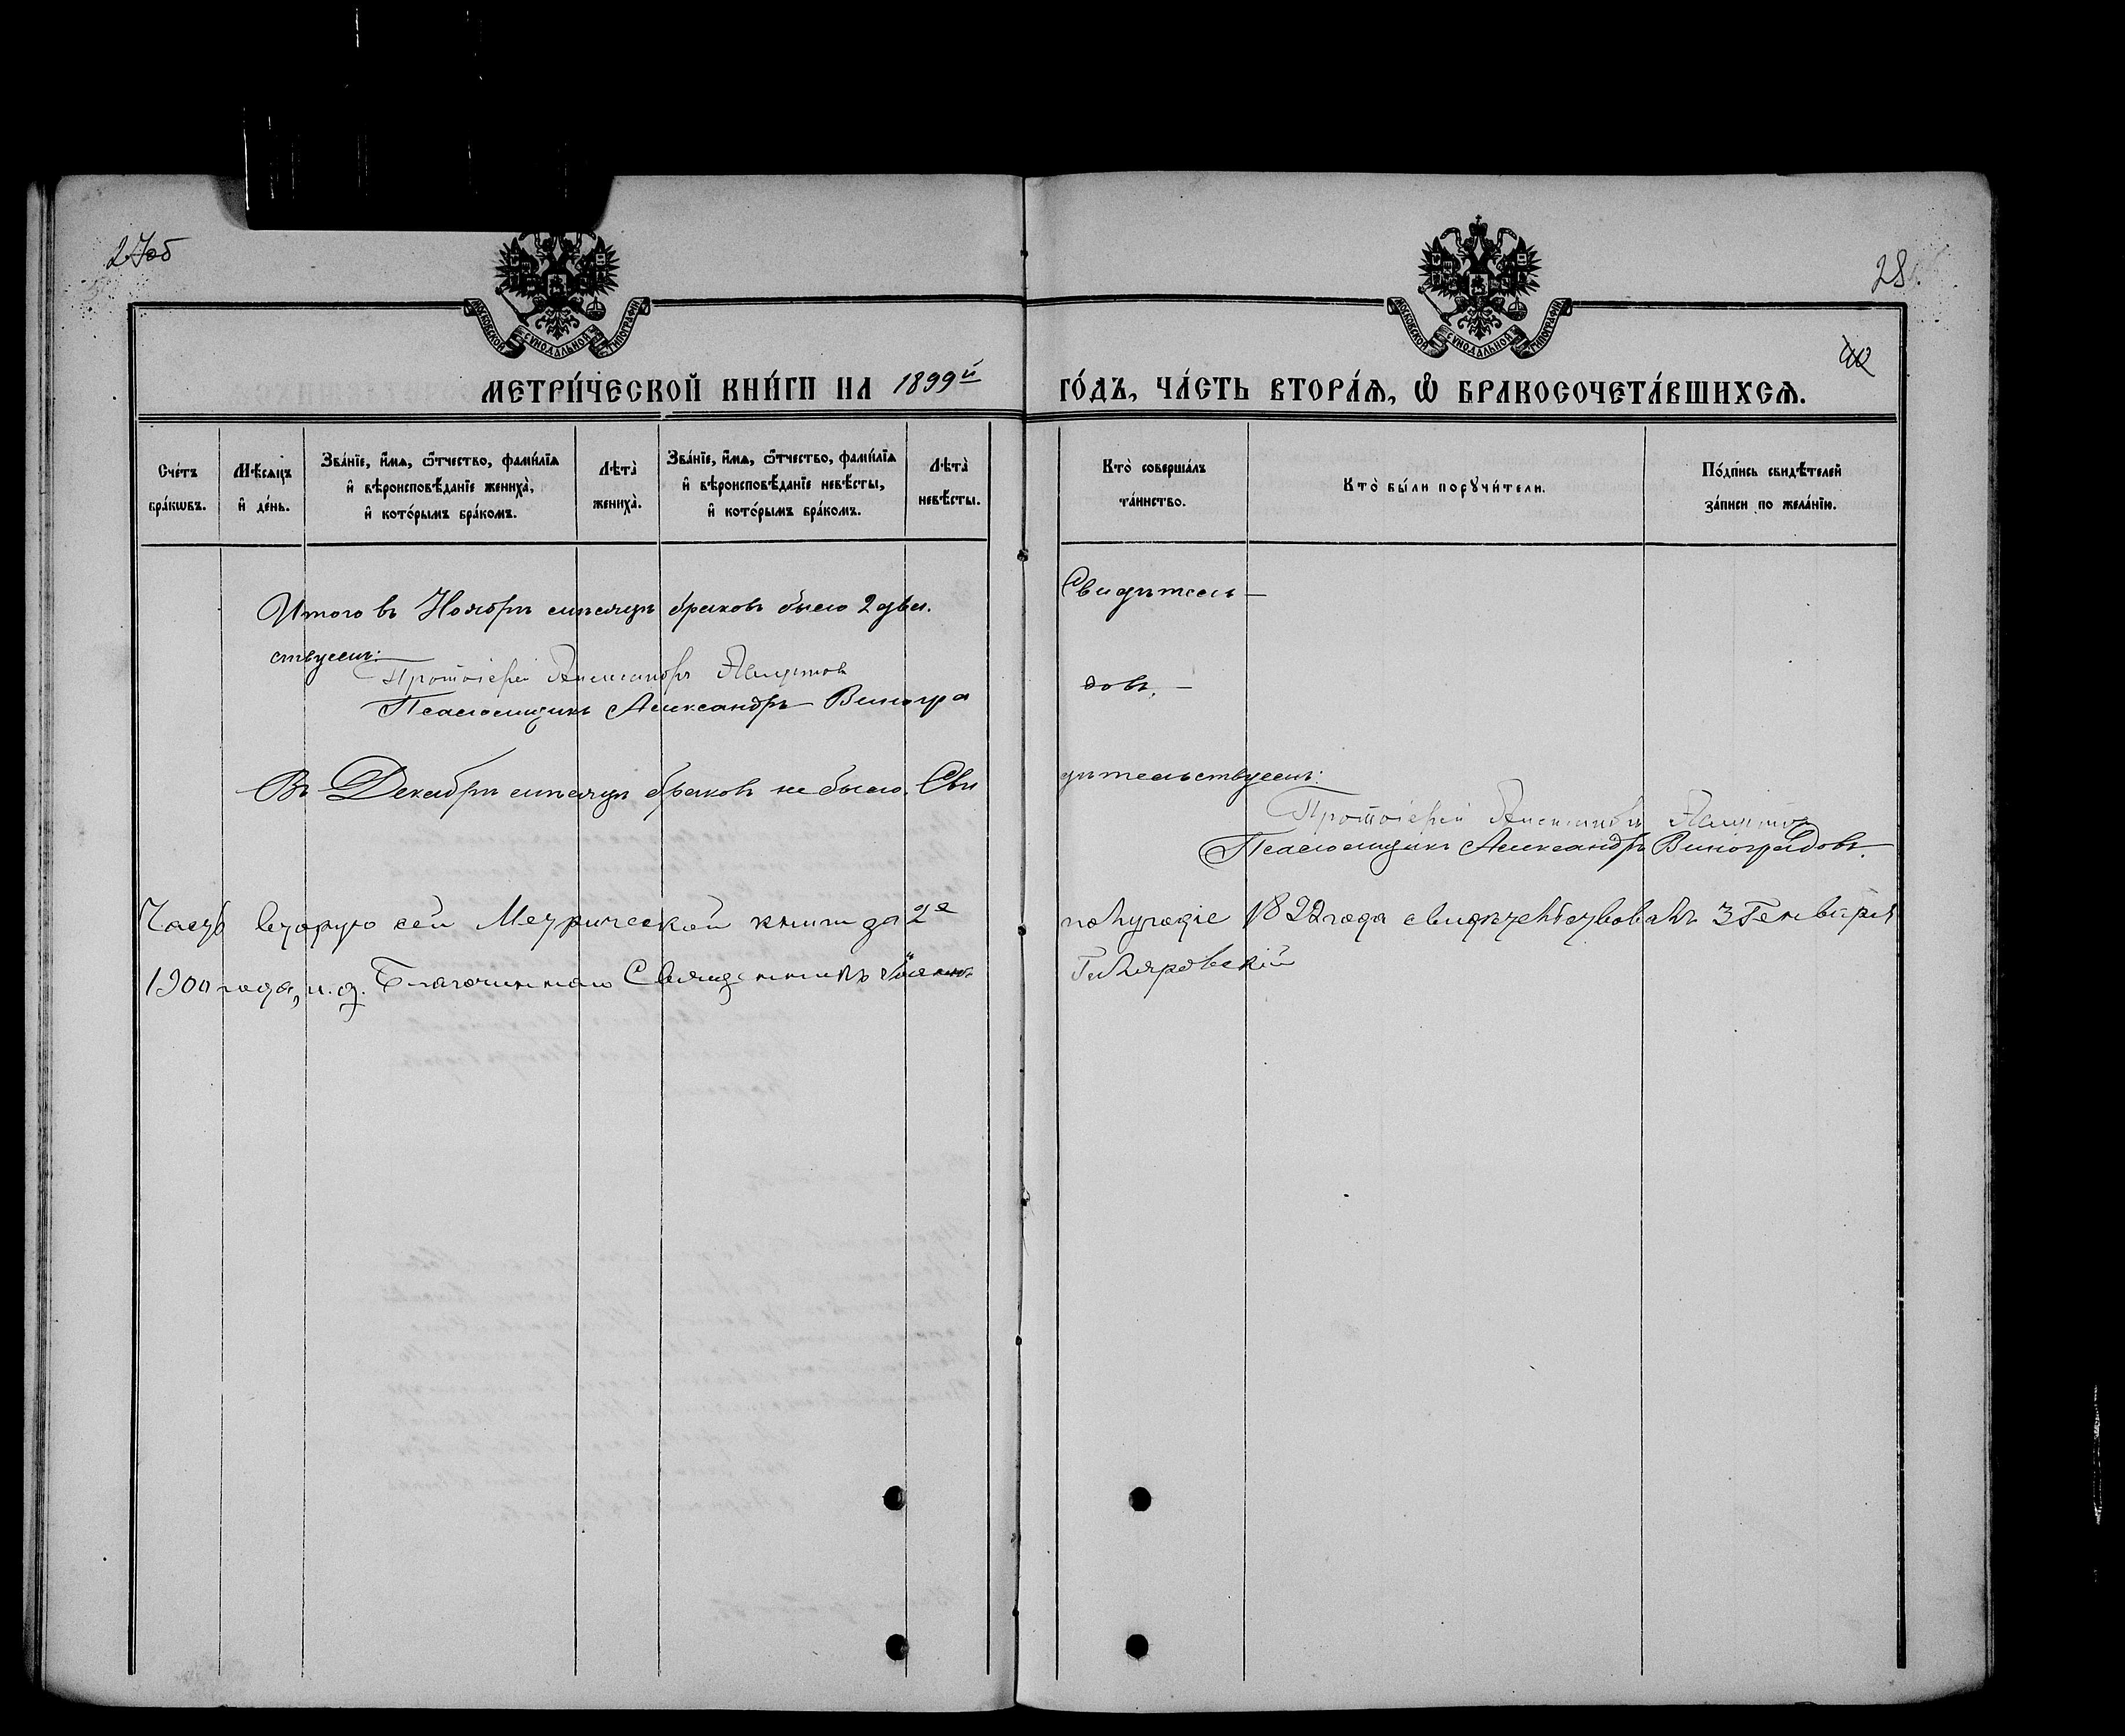 27об
28
МОСКОВСКОЙ СѴНОДАЛЬНОЙ ТИПОГРАФІИ
МОСКОВСКОЙ СѴНОДАЛЬНОЙ ТИПОГРАФІИ
МЕТРИ́ЧЕСКОЙ КНИ́ГИ НА 1899й ГО́ДЪ, ЧА́СТЬ ВТОРА́Ѧ, Ѡ҆ БРАКОСОЧЕТА́ВШИХСѦ.
Сче́тъ бра́кѡвъ.
Мѣ́сѧцъ и҆ де́нь.
Зва́нїе, и҆́мѧ, ѻ҆́тчество, фами́лїѧ и҆ вѣроисповѣ́данїе жениха̀, и҆ кото́рымъ бра́комъ.
Лѣта̀ жениха̀.
Зва́нїе, и҆́мѧ, ѻ҆́тчество, фами́лїѧ и҆ вѣроисповѣ́данїе невѣ́сты, и҆ кото́рымъ бра́комъ.
Лѣта̀ невѣ́сты.
Кто̀ соверша́лъ та́инство.
Кто̀ бы́ли порꙋчи́тели.
По́дпись свидѣ́телей за́писи по жела́нїю.
Итого въ Ноябрѣ мѣсяцѣ браковъ было 2 два. Свидѣтель-
ствуемъ:
Протоіерей Александръ
Псаломщикъ Александръ Виноградовъ.
Въ Декабрѣ мѣсяцѣ браковъ не было. Свидѣтельствуемъ:
Протоіерей Александръ
Псаломщикъ Александръ Виноградовъ.
Часть вторую сей Метрической книги за 2е полугодіе 1899 года свидѣтельствовалъ 3 Генваря
1900 года, и. д. Благочиннаго Священникъ Гиляровскій